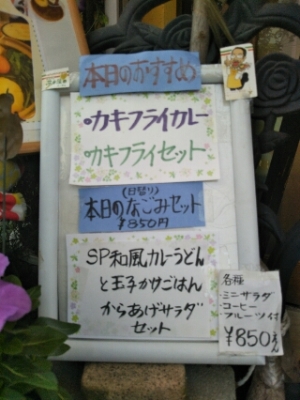 本日のおすすめ
カキフライカレー
カキフライセット
(日替り)
本日のなごみセット
¥850円
SP和風カレーうどん
と玉子かけごはん
からあげサラダ
セット
各種
ミニサラダ
コーヒー
フルーツ付
¥850